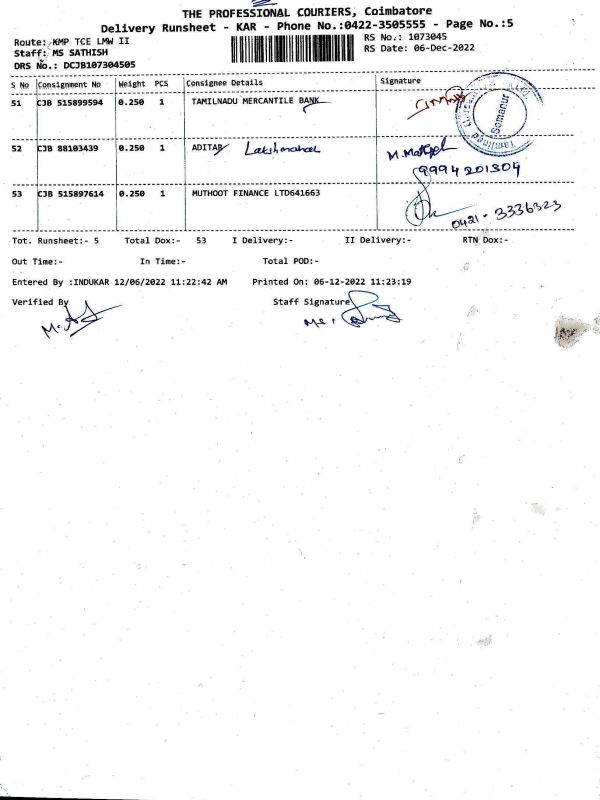 THE PROFESSIONAL COURIERS, Coimbatore
Delivery Runsheet - KAR - Phone No.:0422-3505555 - Page No.:5
Route: KMP TCE LMW II
RS No.: 1073045
Staff: MS SATHISH
RS Date: 06-Dec-2022
DRS No.: DCJB107304505
S No Consignment No Weight PCS Consignee Details Signature
51 CJB 515899594 0.250 1 TAMILNADU MERCANTILE BANK
Somanur
52 CJB 88103439 0.250 1 ADITAR Lakshmanan
9994201304
53 CJB 515897614 0.250 1 MUTHOOT FINANCE LTD641663
0421-3336323
Tot. Runsheet:- 5 Total Dox:- 53 I Delivery:- II Delivery:- RTN Dox:-
Out Time:- In Time:- Total POD:-
Entered By :INDUKAR 12/06/2022 11:22:42 AM Printed On: 06-12-2022 11:23:19
Verified By Staff Signature